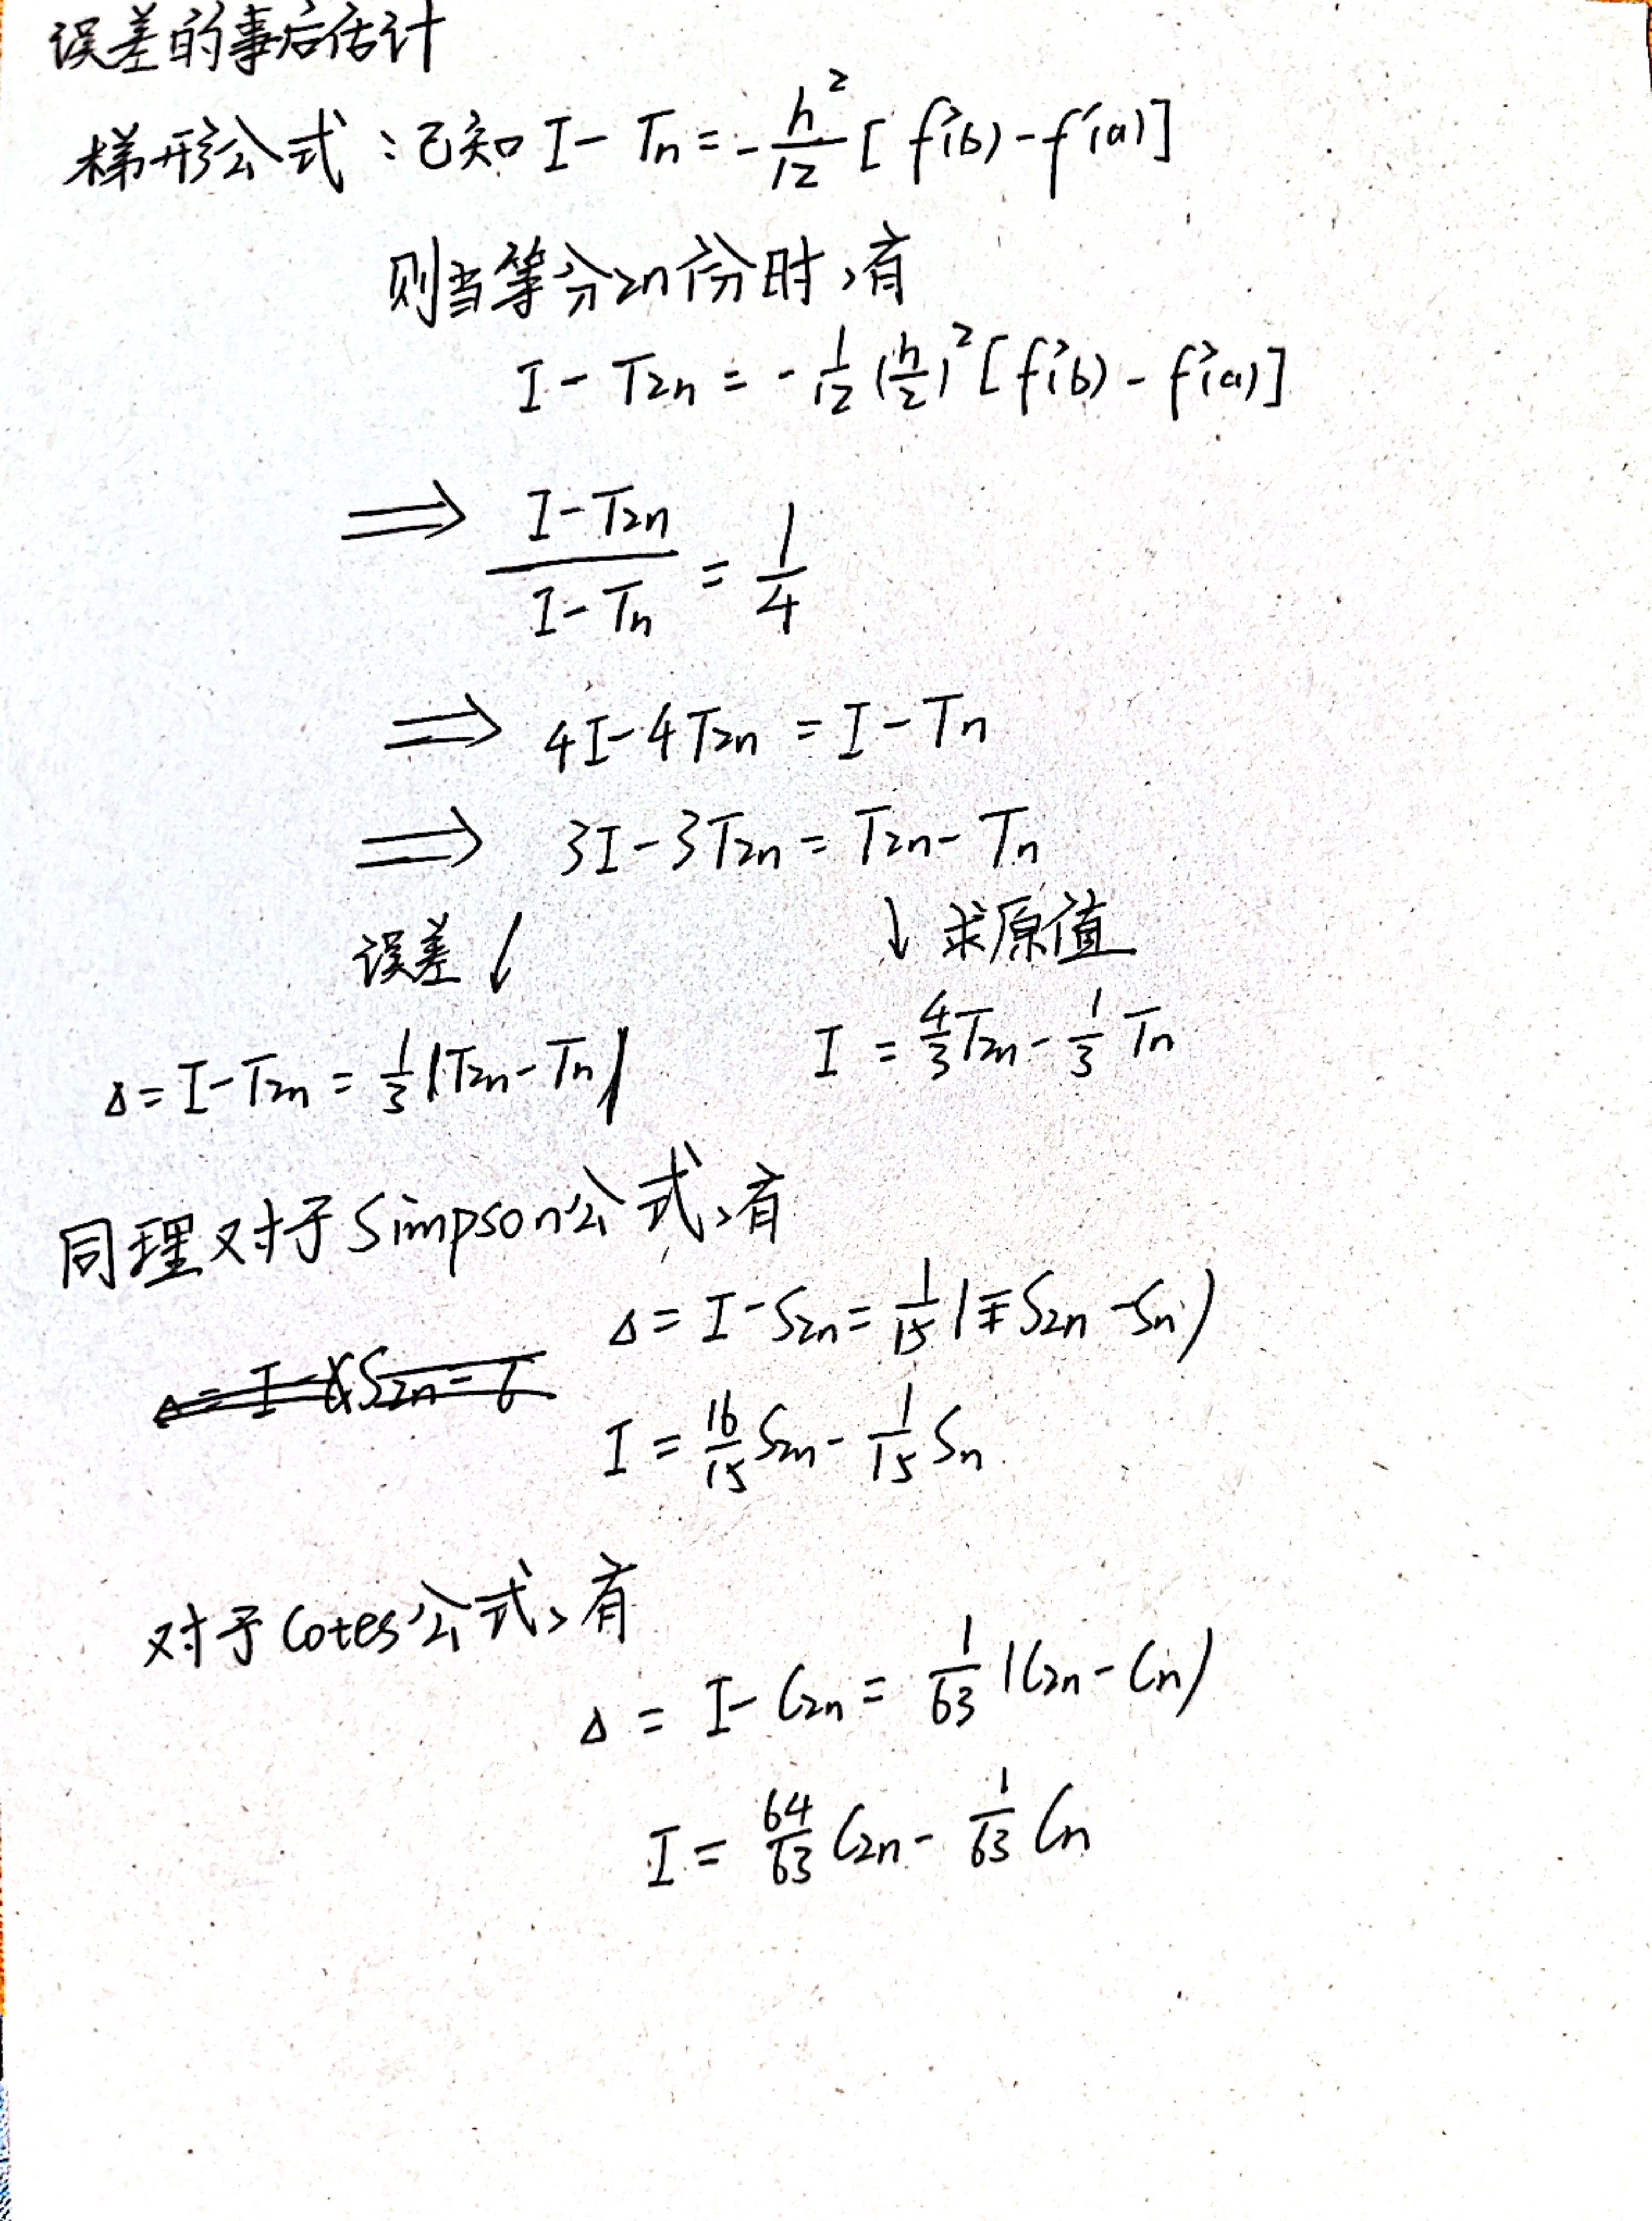 误差的事后估计
梯形公式：已知 I - Tn = -h²/12 [f'(b) - f'(a)]
则当等分2n份时，有
I - T2n = -1/12 (h/2)² [f'(b) - f'(a)]
⟹ (I - T2n)/(I - Tn) = 1/4
⟹ 4I - 4T2n = I - Tn
⟹ 3I - 3T2n = T2n - Tn
误差 ↓ ↓ 求原值
Δ = I - T2n = 1/3 (T2n - Tn) I = 4/3 T2n - 1/3 Tn
同理对于Simpson公式，有
Δ = I - S2n = 1/15 (S2n - Sn)
I = 16/15 S2n - 1/15 Sn
对于Cotes公式，有
Δ = I - C2n = 1/63 (C2n - Cn)
I = 64/63 C2n - 1/63 Cn